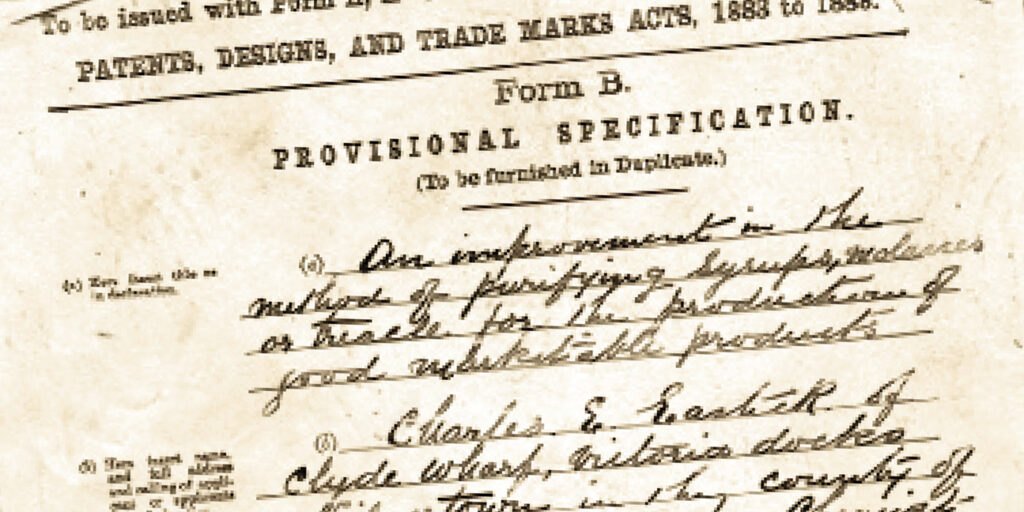 To be issued with Form
PATENTS, DESIGNS, AND TRADE MARKS ACTS, 1883 to 1888.
Form B.
PROVISIONAL SPECIFICATION.
(To be furnished in Duplicate.)
(a) Here insert title as in declaration.
(a) An improvement in the
method of purifying syrups, molasses
or treacle for the production of
good marketable products
(b) Here insert name, full address and calling of
(b) Charles E. Eastick of
Clyde Wharf, Victoria docks
town in the county of